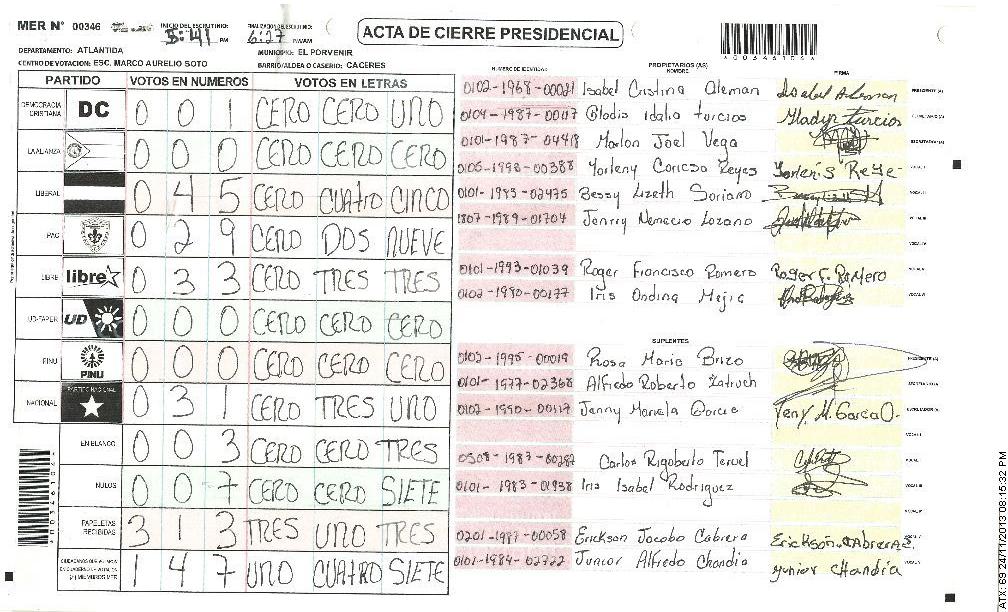 MER N° 00346
INICIO DEL ESCRUTINIO: 5:41 PM
6:27 PM/AM
ACTA DE CIERRE PRESIDENCIAL
*00346104*
DEPARTAMENTO: ATLANTIDA
MUNICIPIO: EL PORVENIR
CENTRO DE VOTACION: ESC. MARCO AURELIO SOTO
BARRIO/ALDEA O CASERIO: CACERES
PARTIDO VOTOS EN NUMEROS VOTOS EN LETRAS
NUMERO DE IDENTIDAD PROPIETARIOS (AS) NOMBRE FIRMA
DEMOCRACIA CRISTIANA DC 0 0 1 CERO CERO UNO
LA ALIANZA 0 0 0 CERO CERO CERO
LIBERAL 0 4 5 CERO CUATRO CINCO
PAC 0 2 9 CERO DOS NUEVE
LIBRE libre 0 3 3 CERO TRES TRES
UD-FAPER UD 0 0 0 CERO CERO CERO
PINU PINU 0 0 0 CERO CERO CERO
NACIONAL PARTIDO NACIONAL 0 3 1 CERO TRES UNO
EN BLANCO 0 0 3 CERO CERO TRES
NULOS 0 0 7 CERO CERO SIETE
PAPELETAS RECIBIDAS 3 1 3 TRES UNO TRES
1 4 7 UNO CUATRO SIETE
0102-1968-00021 Isabel Cristina Aleman Isabel Aleman PRESIDENTE (A)
0104-1987-00117 Gladis Idalia Turcios Gladys Turcios
0101-1987-04418 Marlon Joel Vega SECRETARIO (A)
Reyes
0101-1985-02475 Bessy Lizeth Soriano
1807-1989-01704 Lozano
0101-1993-01039 Roger Francisco Romero Roger F. Romero
0102-1980-00177 Iris Ondina Mejia
SUPLENTES
Rosa Maria PRESIDENTE (A)
0101-1977-02368 Alfredo Roberto
0102-1990-00117 Jenny Mariela Garcia Yeny M. Garcia O. ESCRUTADOR (A)
Carlos Rigoberto Teruel
0101-1983-01938 Iris Isabel Rodriguez
0201-1987-00058 Erickson Jacobo Cabrera Erickson Cabrera
0101-1984-02722 Junior Alfredo Chandia Junior Chandia
*00346104*
ATX: 69 24/11/2013 08:15:32 PM